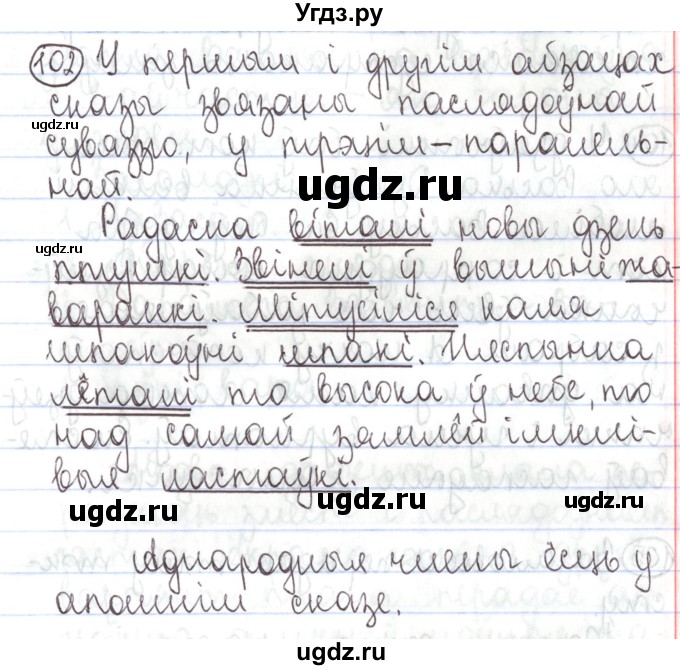 Угдз.ру
102 У першым і другім абзацах
сказы звязаны паслядоўнай
ugdz.ru
сувяззю, у трэцім – паралель-
най.
ugdz.ru
Радасна віталі новы дзень
ugdz.ru
птушкі. Звінелі ў вышыні жа-
варанкі. Мітусіліся каля
шпакоўні шпакі. Няспынна
лёталі то высока ў небе, то
над самай зямлёй імклі-
выя ластаўкі.
ugdz.ru ugdz.ru ugdz.ru
Аднародныя члены ёсць у
апошнім сказе.
ugdz.ru ugdz.ru